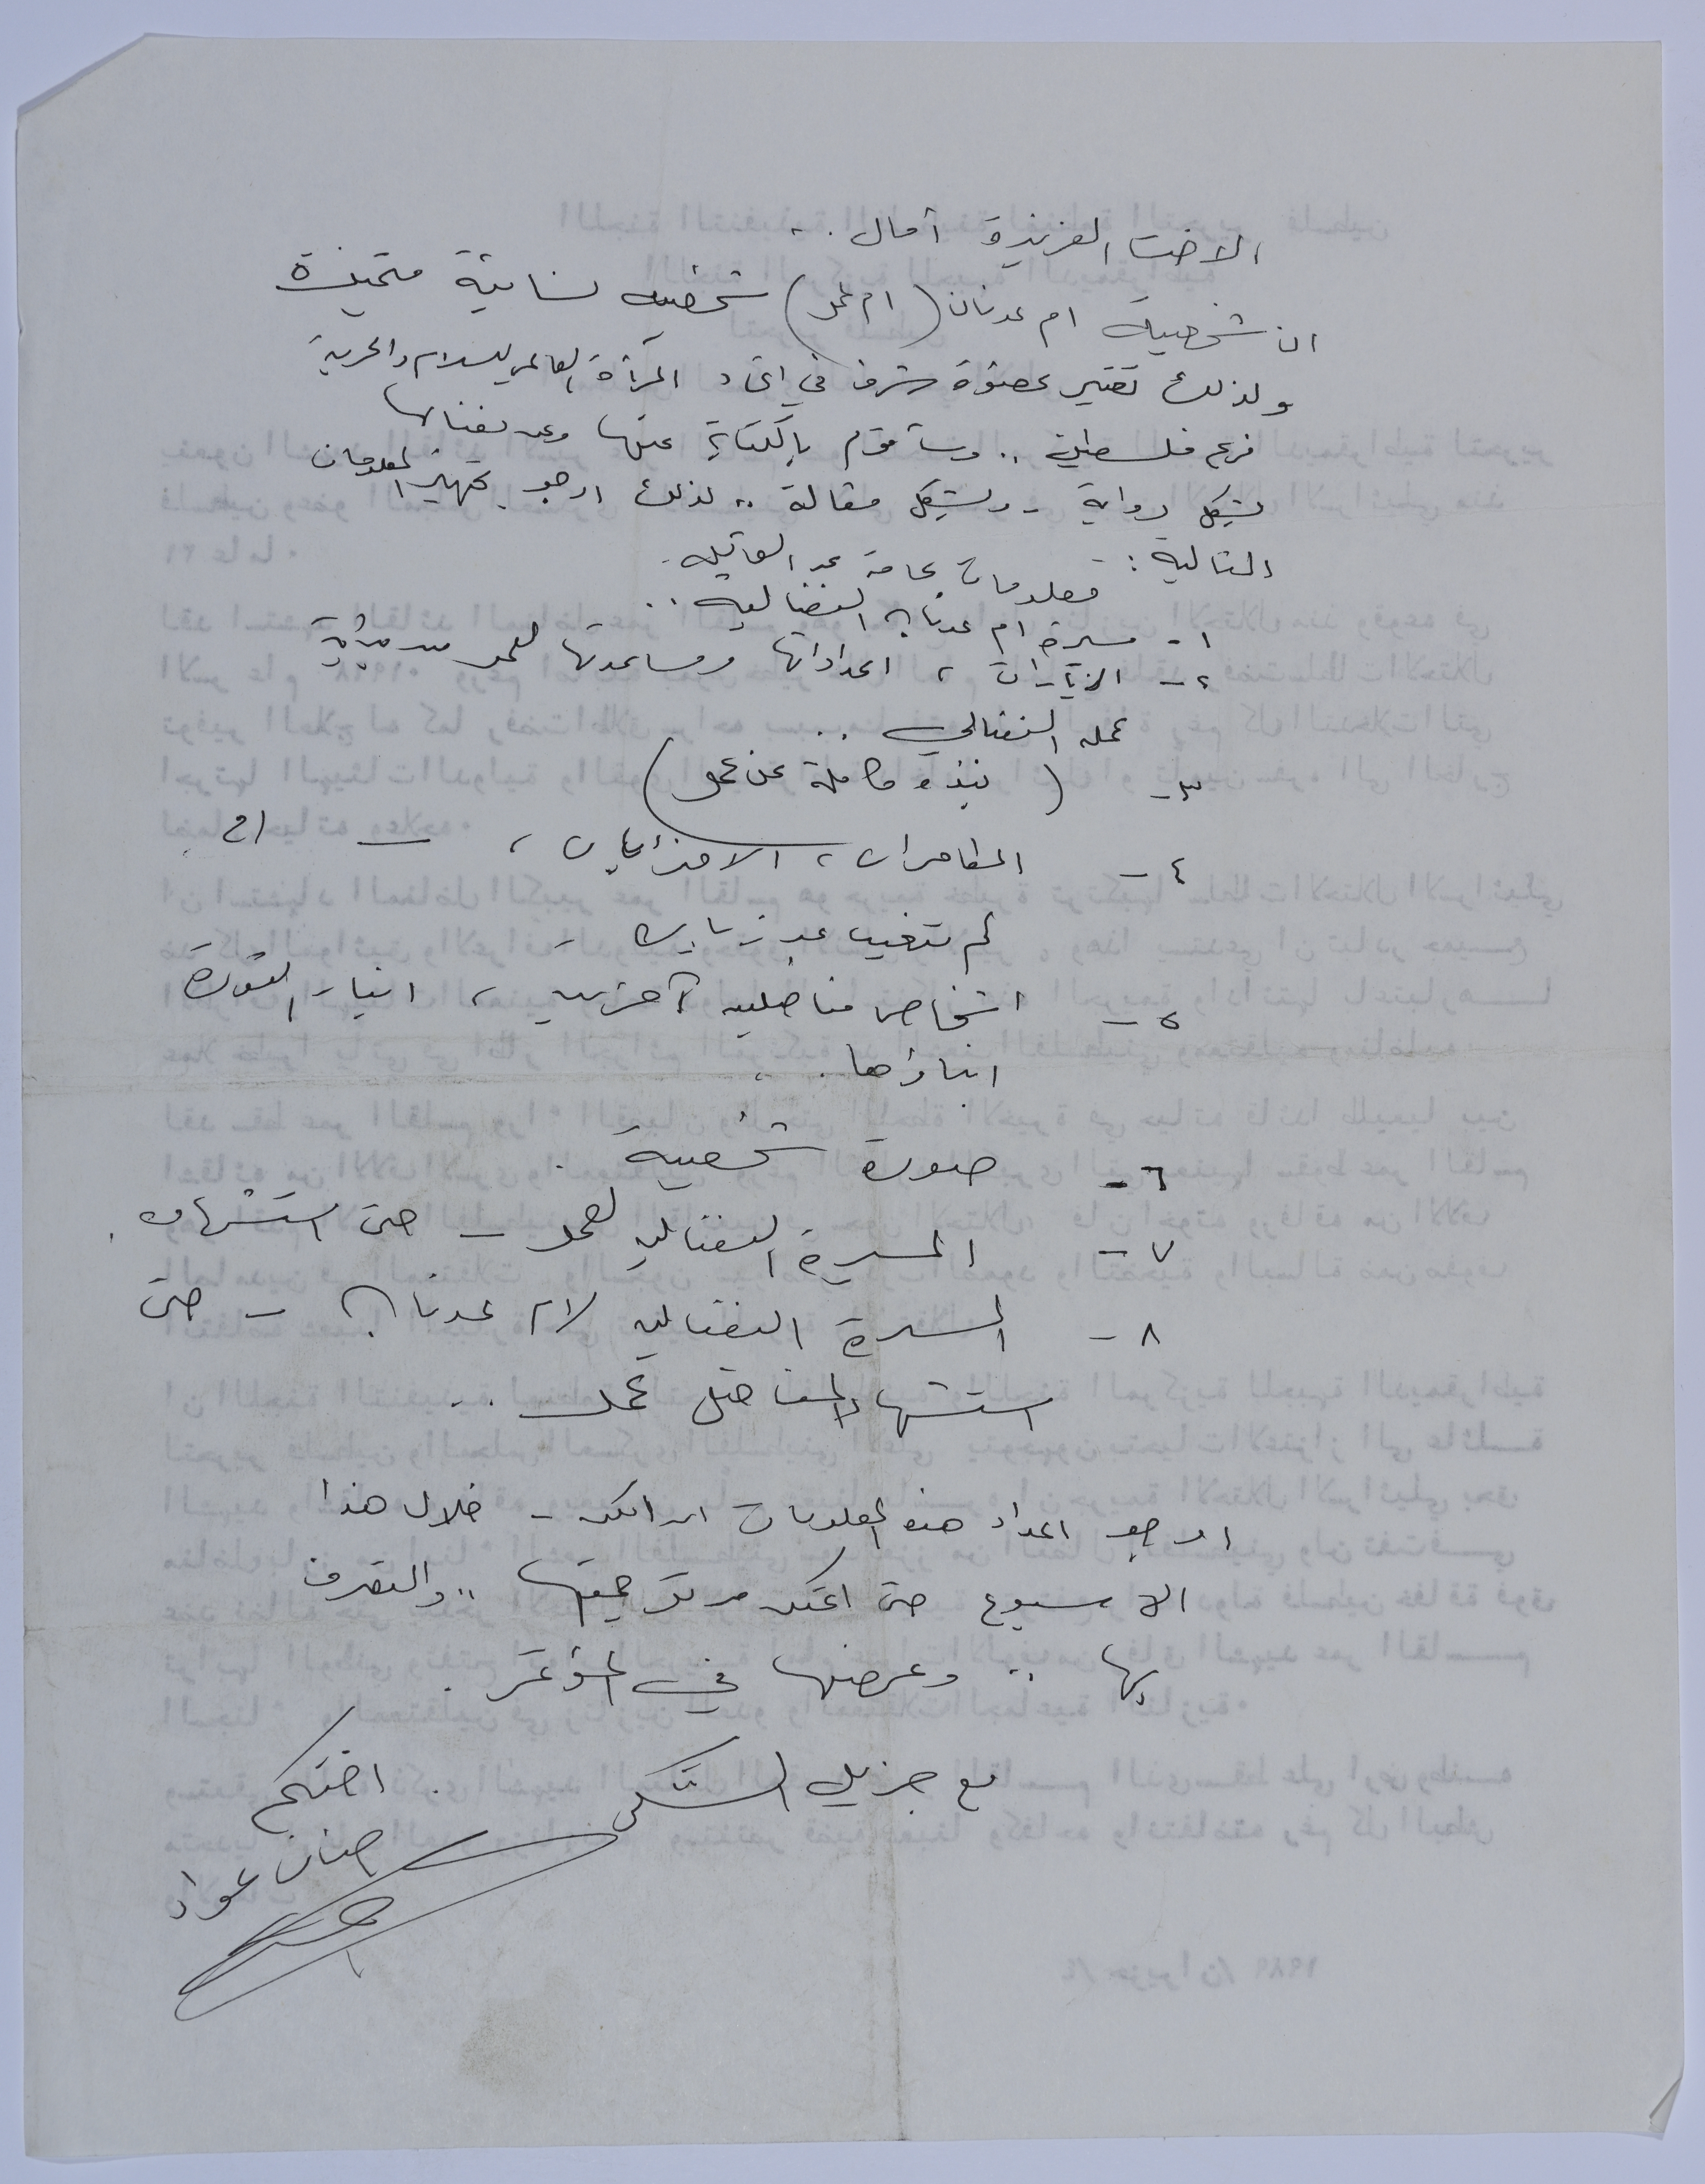 الاخت العزيزة آمال ..
ان شخصية ام عدنان (ام عمر) شخصيه نسائية متميزة
ولذلك تعتبر عضوة شرف في اتحاد المرأة العالمي للسلام والحرية
فرع فلسطين .. وسأقوم بالكتابة عنها وعن نضالها
بشكل رواية - وبشكل مقالة .. لذلك ارجو تجهيز المعلومات
التالية : -
معلومات عامة عن العائلة -
١ - مسيرة ام عدنان النضاليه ..
٢ - الزيارات ، اعداداتها ومساعدتها لعمر من بداية
عمله النضالي ..
٣ - ( نبذه كاملة عن عمر )
٤ - المظاهرات ، الاضرابات ، - الخ
لم تتغيب عن زيارة -
٥ - اشخاص مناضلين آخرين ، اخبار الثورة
ابناؤها . .
٦ - صورة شخصية .
٧ - المسيرة النضاليه لعمر - حتى استشهاده .
٨ - المسيرة النضاليه لام عدنان - حتى
استشهاد المناضل عمر ..
ارجو اعداد هذه المعلومات - خلال هذا
الاسبوع حتى اتمكن من ترجمتها .. والتصرف
بها .. وعرضها في المؤتمر .
مع جزيل الشكر .
اختكم
حنان عواد